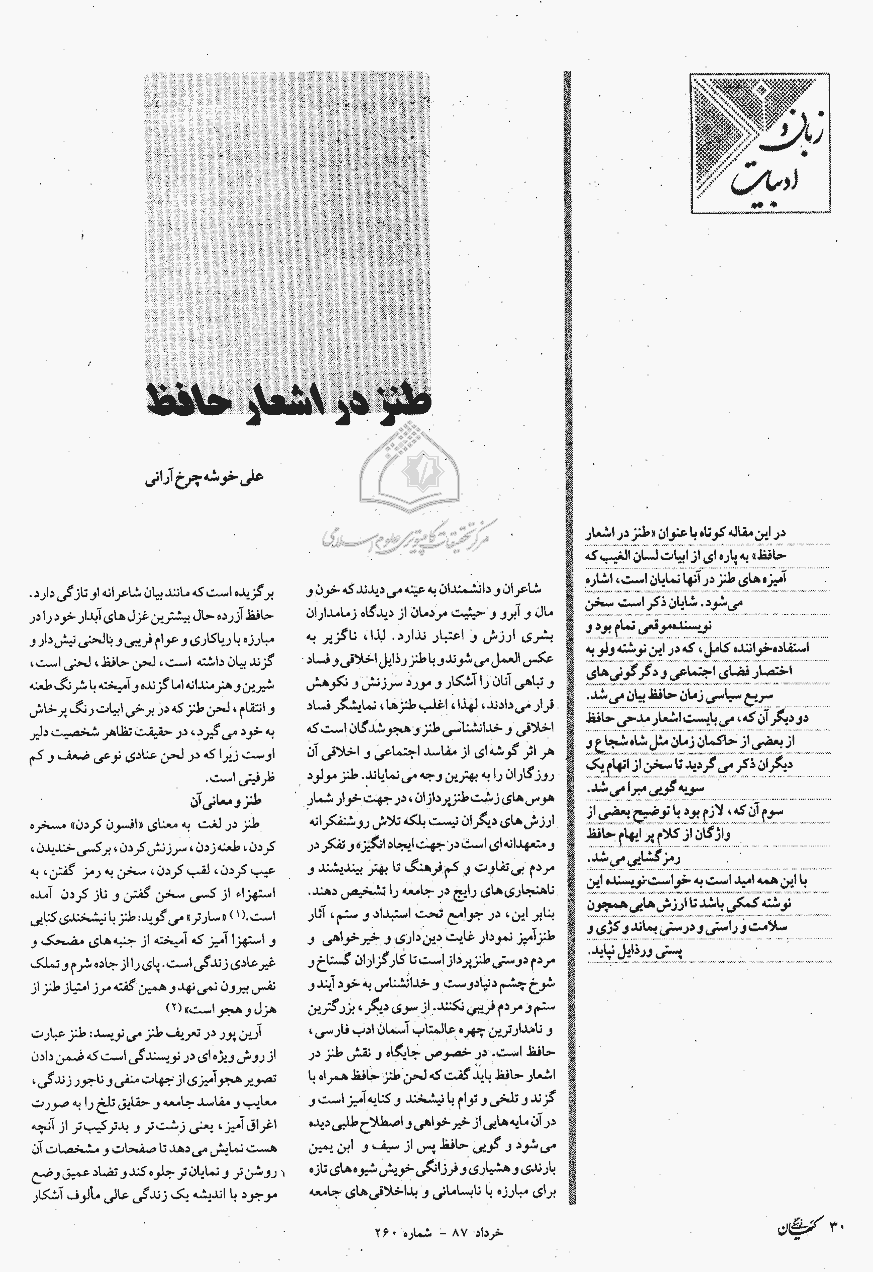 زبان و
ادبیات
طنز در اشعار حافظ
علی خوشه‌چرخ آرانی
مرکز تحقیقات کامپیوتری علوم اسلامی
در این مقاله کوتاه با عنوان «طنز در اشعار
حافظ» به پاره ای از ابیات لسان الغیب که
آمیزه های طنز در آنها نمایان است، اشاره
می‌شود. شایان ذکر است سخن
نویسنده‌موقعی تمام بود و
استفاده‌خواننده کامل، که در این نوشته ولو به
اختصار فضای اجتماعی و دگرگونی‌های
سریع سیاسی زمان حافظ بیان می شد.
دو دیگر آن که، می بایست اشعار مدحی حافظ
از بعضی از حاکمان زمان مثل شاه شجاع و
دیگران ذکر می گردید تا سخن از اتهام یک
سویه گویی مبرا می شد.
سوم آن که، لازم بود با توضیح بعضی از
واژگان از کلام پر ایهام حافظ
رمزگشایی می شد.
با این همه امید است به خواست نویسنده این
نوشته کمکی باشد تا ارزش هایی همچون
سلامت و راستی و درستی بماند و کژی و
پستی و رذایل نپاید.
شاعران و دانشمندان به عینه می دیدند که خون و
مال و آبرو و حیثیت مردمان از دیدگاه زمامداران
بشری ارزش و اعتبار ندارد. لذا، ناگزیر به
عکس العمل می شوند و با طنز رذایل اخلاقی و فساد
و تباهی آنان را آشکار و مورد سرزنش و نکوهش
قرار می دادند، لهذا، اغلب طنزها، نمایشگر فساد
اخلاقی و خدانشناسی طنز و هجو شدگان است که
هر اثر گوشه ای از مفاسد اجتماعی و اخلاقی آن
روزگاران را به بهترین وجه می نمایاند. طنز مولود
هوس های زشت طنزپردازان، در جهت خوار شمار
ارزش های دیگران نیست بلکه تلاش روشنفکرانه
و متعهدانه ای است در جهت ایجاد انگیزه و تفکر در
مردم بی تفاوت و کم فرهنگ تا بهتر بیندیشند و
ناهنجاری‌های رایج در جامعه را تشخیص دهند.
بنابر این، در جوامع تحت استبداد و ستم، آثار
طنزآمیز نمودار غایت دین داری و خیرخواهی و
مردم دوستی طنزپرداز است تا کارگزاران گستاخ و
شوخ چشم دنیادوست و خدانشناس به خود آیند و
ستم و مردم فریبی نکنند. از سوی دیگر، بزرگترین
و نامدارترین چهره عالمتاب آسمان ادب فارسی،
حافظ است. در خصوص جایگاه و نقش طنز در
اشعار حافظ باید گفت که لحن طنز حافظ همراه با
گزند و تلخی و توام با نیشخند و کنایه آمیز است و
در آن مایه هایی از خیرخواهی و اصطلاح طلبی دیده
می شود و گویی حافظ پس از سیف و ابن یمین
بارندی و هشیاری و فرزانگی خویش شیوه های تازه
برای مبارزه با نابسامانی و بداخلاقی‌های جامعه
برگزیده است که مانند بیان شاعرانه او تازگی دارد.
حافظ آزرده حال بیشترین غزل های آبدار خود را در
مبارزه با ریاکاری و عوام فریبی و بالحنی نیش دار و
گزند بیان داشته است، لحن حافظ، لحنی است،
شیرین و هنرمندانه اما گزنده و آمیخته با شرنگ طعنه
و انتقام، لحن طنز که در برخی ابیات رنگ پرخاش
به خود می گیرد، در حقیقت تظاهر شخصیت دلیر
اوست زیرا که در لحن عنادی نوعی ضعف و کم
ظرفیتی است.
طنز و معانی آن
طنز در لغت به معنای «افسون کردن» مسخره
کردن، طعنه زدن، سرزنش کردن، برکسی خندیدن،
عیب کردن، لقب کردن، سخن به رمز گفتن، به
استهزاء از کسی سخن گفتن و ناز کردن آمده
است.(۱) «سارتر» می گوید: طنز با نیشخندی کنایی
و استهزا آمیز که آمیخته از جنبه های مضحک و
غیرعادی زندگی است. پای را از جاده شرم و تملک
نفس بیرون نمی نهد و همین گفته مرز امتیاز طنز از
هزل و هجو است» (۲)
آرین پور در تعریف طنز می نویسد: طنز عبارت
از روش ویژه ای در نویسندگی است که ضمن دادن
تصویر هجو آمیزی از جهات منفی و ناجور زندگی،
معایب و مفاسد جامعه و حقایق تلخ را به صورت
اغراق آمیز، یعنی زشت تر و بدترکیب تر از آنچه
هست نمایش می دهد تا صفحات و مشخصات آن
روشن تر و نمایان تر جلوه کند و تضاد عمیق وضع
موجود با اندیشه یک زندگی عالی مألوف آشکار
۳۰ کیهان فرهنگی
خرداد ۸۷ - شماره ۲۶۰